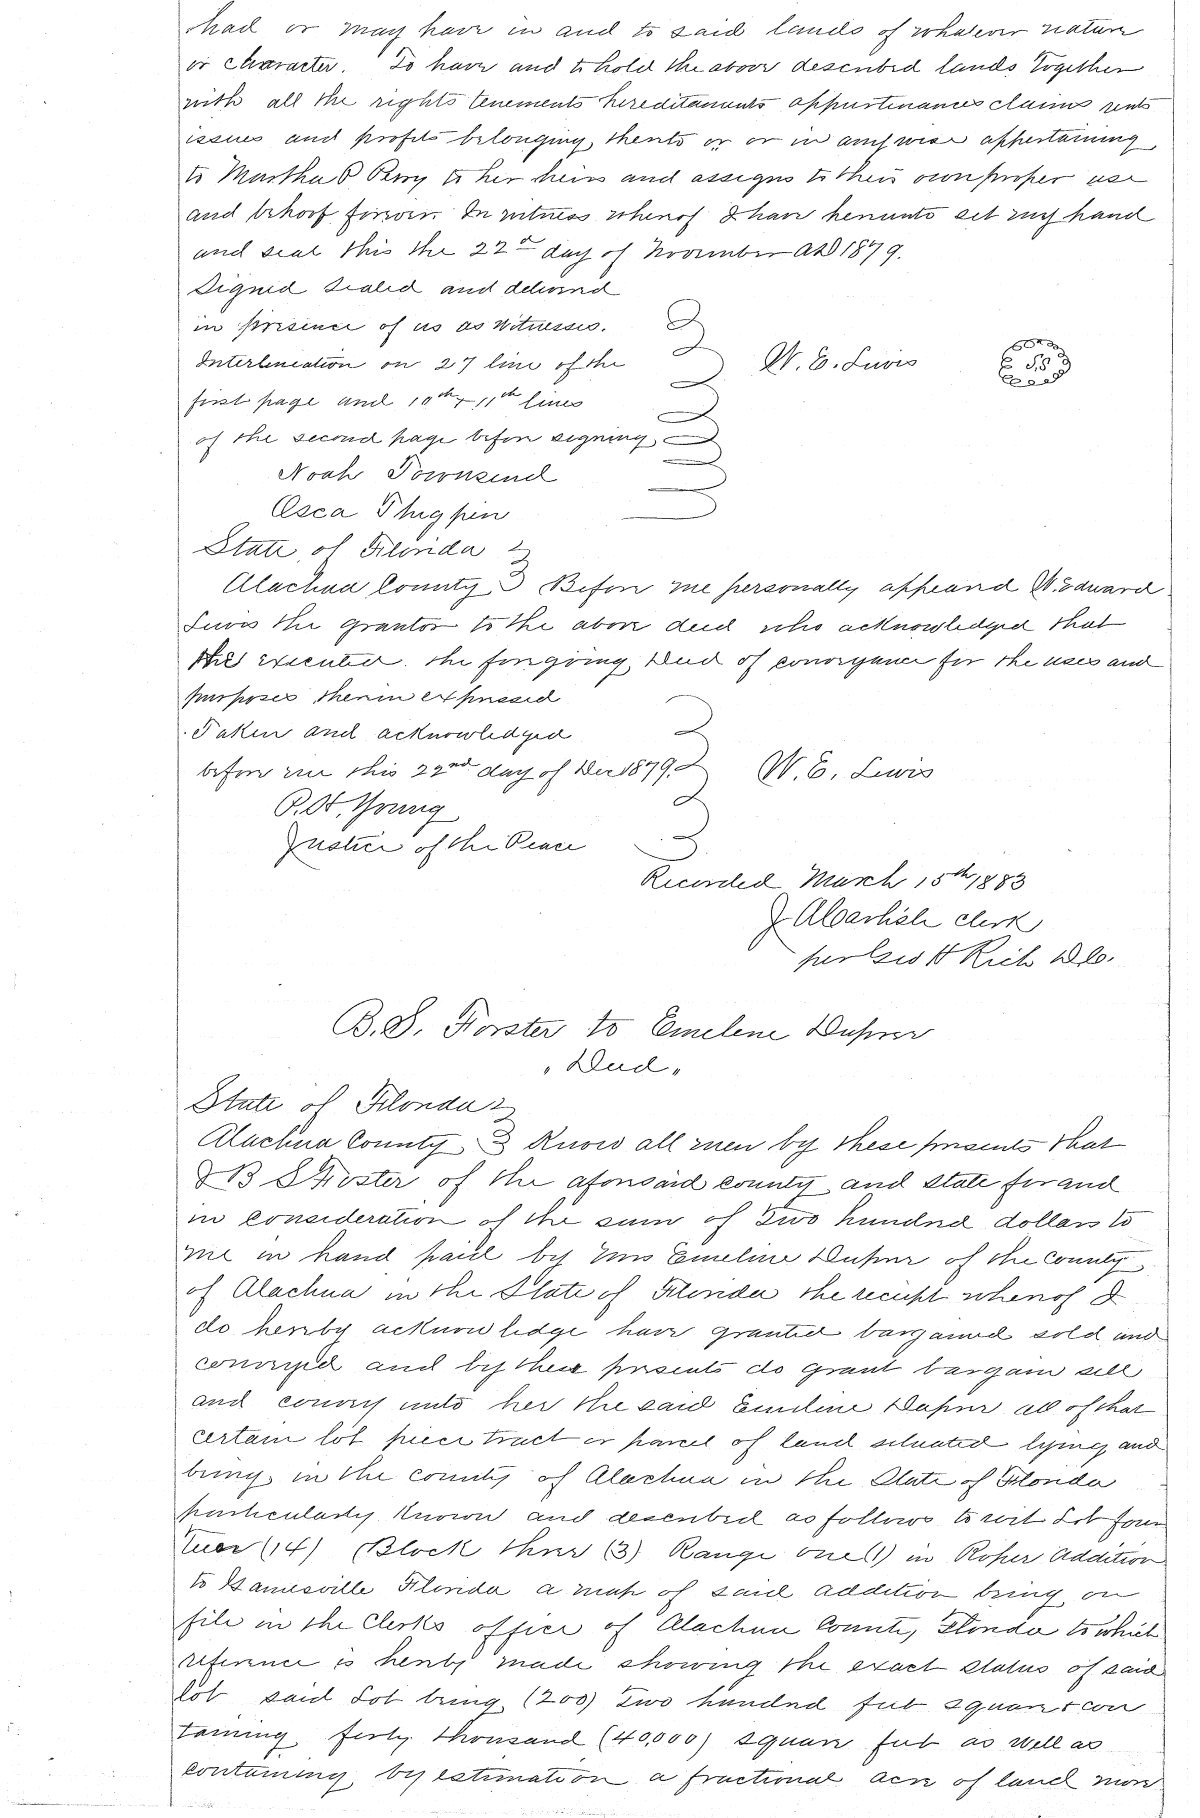 had or may have in and to said lands of whatever nature
or character. To have and to hold the above described lands together
with all the rights tenements hereditaments appurtenances claims rents
issues and profits belonging thereto or or in any wise appertaining
to Martha P Perry to her heirs and assigns to their own proper use
and behoof forever. In witness whereof I have hereunto set my hand
and seal this the 22d day of November AD 1879.
Signed sealed and delivered
in presence of us as Witnesses.
Interlineation on 27 line of the
W. E. Lewis
first page and 10th & 11th lines
of the second page before signing
Noah Townsend
Asca Thigpen
State of Florida
Alachua County } Before me personally appeard W. Edward
Lewis the grantor to the above deed who acknowledged that
he executed the foregoing Deed of conveyance for the uses and
purposes therein expressed
Taken and acknowledged
before me this 22nd day of Dec 1879.
W. E. Lewis
P. H. Young
Justice of the Peace
Recorded March 15th 1883
J A Carlisle Clerk
per Geo H Rich D.C.
B. S. Forster to Emelene Dupree
"Deed"
State of Florida
Alachua County } Know all men by these presents that
I B S Forster of the aforesaid county and state for and
in consideration of the sum of Two hundred dollars to
me in hand paid by Mrs Emeline Dupree of the County
of Alachua in the State of Florida the receipt whereof I
do hereby acknowledge have granted bargained sold and
conveyed and by these presents do grant bargain sell
and convey unto her the said Emeline Dupree all of that
certain lot piece tract or parcel of land situated lying and
being in the county of Alachua in the State of Florida
particularly Known and described as follows to wit Lot four
teen (14) Block three (3) Range one (1) in Roper Addition
to Gainesville Florida a map of said addition being on
file in the Clerks office of Alachua County Florida to which
reference is hereby made showing the exact status of said
lot said Lot being (200) Two hundred feet square & con
taining forty thousand (40,000) square feet as well as
containing by estimation a fractional acre of land more